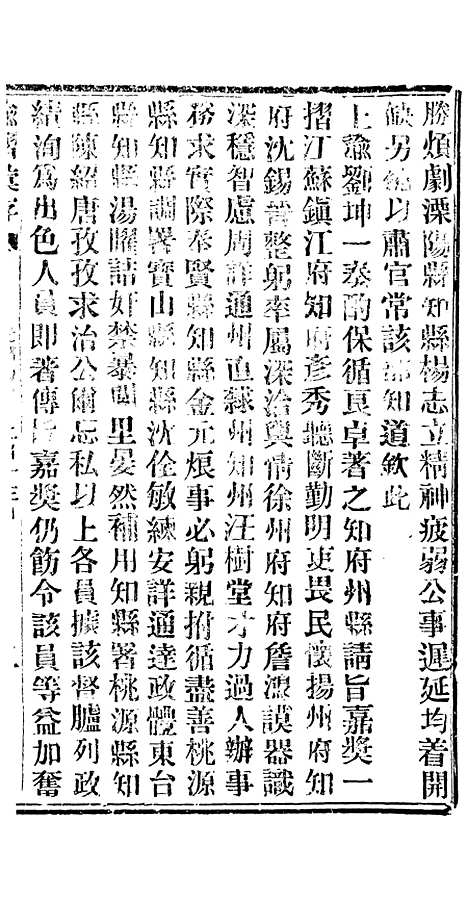 勝煩劇溧陽縣知縣楊志立精神疲弱公事遲延均着開
缺另銓以肅官常該部知道欽此
上諭劉坤一奏酌保循良卓著之知府州縣請旨嘉獎一
摺江蘇鎮江府知府彥秀聽斷勤明吏畏民懷揚州府知
府沈錫晉整躬率屬深洽輿情徐州府知府詹鴻謨器識
深穩智慮周詳通州直隸州知州汪樹堂才力過人辦事
務求實際奉賢縣知縣金元烺事必躬親拊循盡善桃源
縣知縣調署寶山縣知縣沈佺敏練安詳通達政體東台
縣知縣湯曜詰奸禁暴閭里晏然補用知縣署桃源縣知
縣陳紹唐孜孜求治公爾忘私以上各員據該督臚列政
績洵為出色人員即著傳旨嘉獎仍飭令該員等益加奮